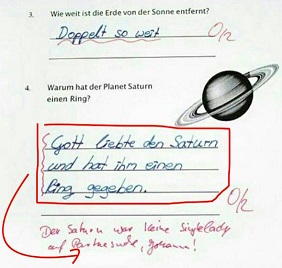 3. Wie weit ist die Erde von der Sonne entfernt?
Doppelt so weit 0/2
4. Warum hat der Planet Saturn
einen Ring?
Gott liebte den Saturn
und hat ihm einen
Ring gegeben.
0/2
Der Saturn war keine Singlelady
auf Partnersuche, Johann!